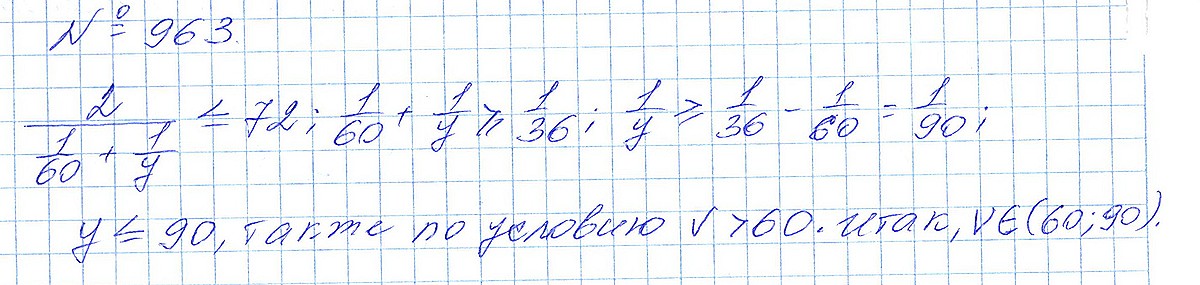 № 963.
2/(1/60 + 1/y) ≤ 72; 1/60 + 1/y ≥ 1/36; 1/y ≥ 1/36 - 1/60 = 1/90;
y ≤ 90, также по условию V > 60. Итак, V ∈ (60; 90).